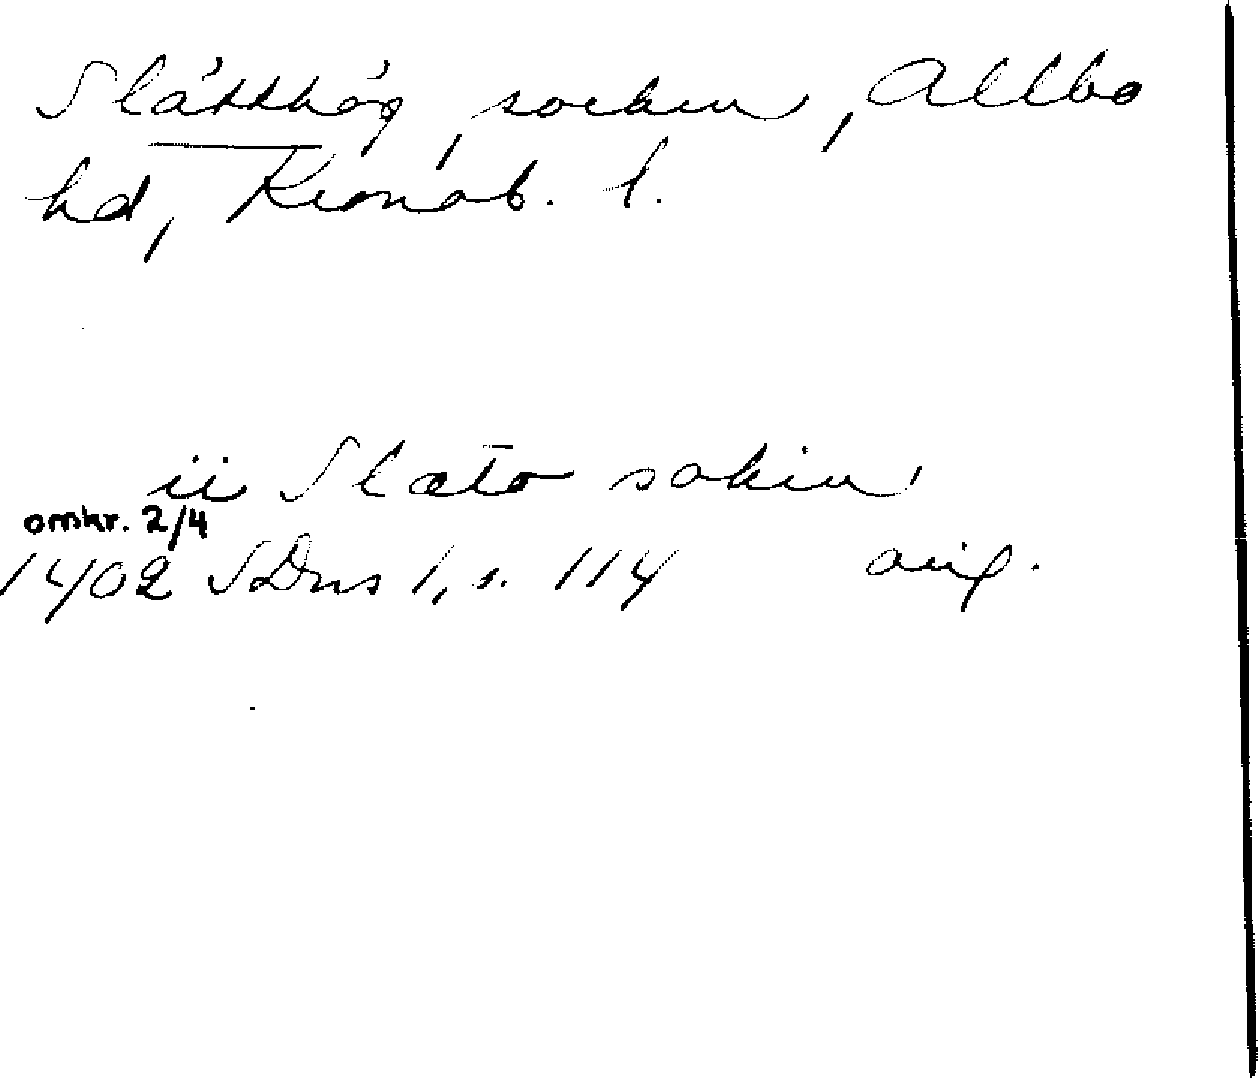 Slätthög, socken, Allbo
hd, Kronob. l.
ii Slæto sokin
omkr. 2/4
1402 SDns 1, s. 114 orig.